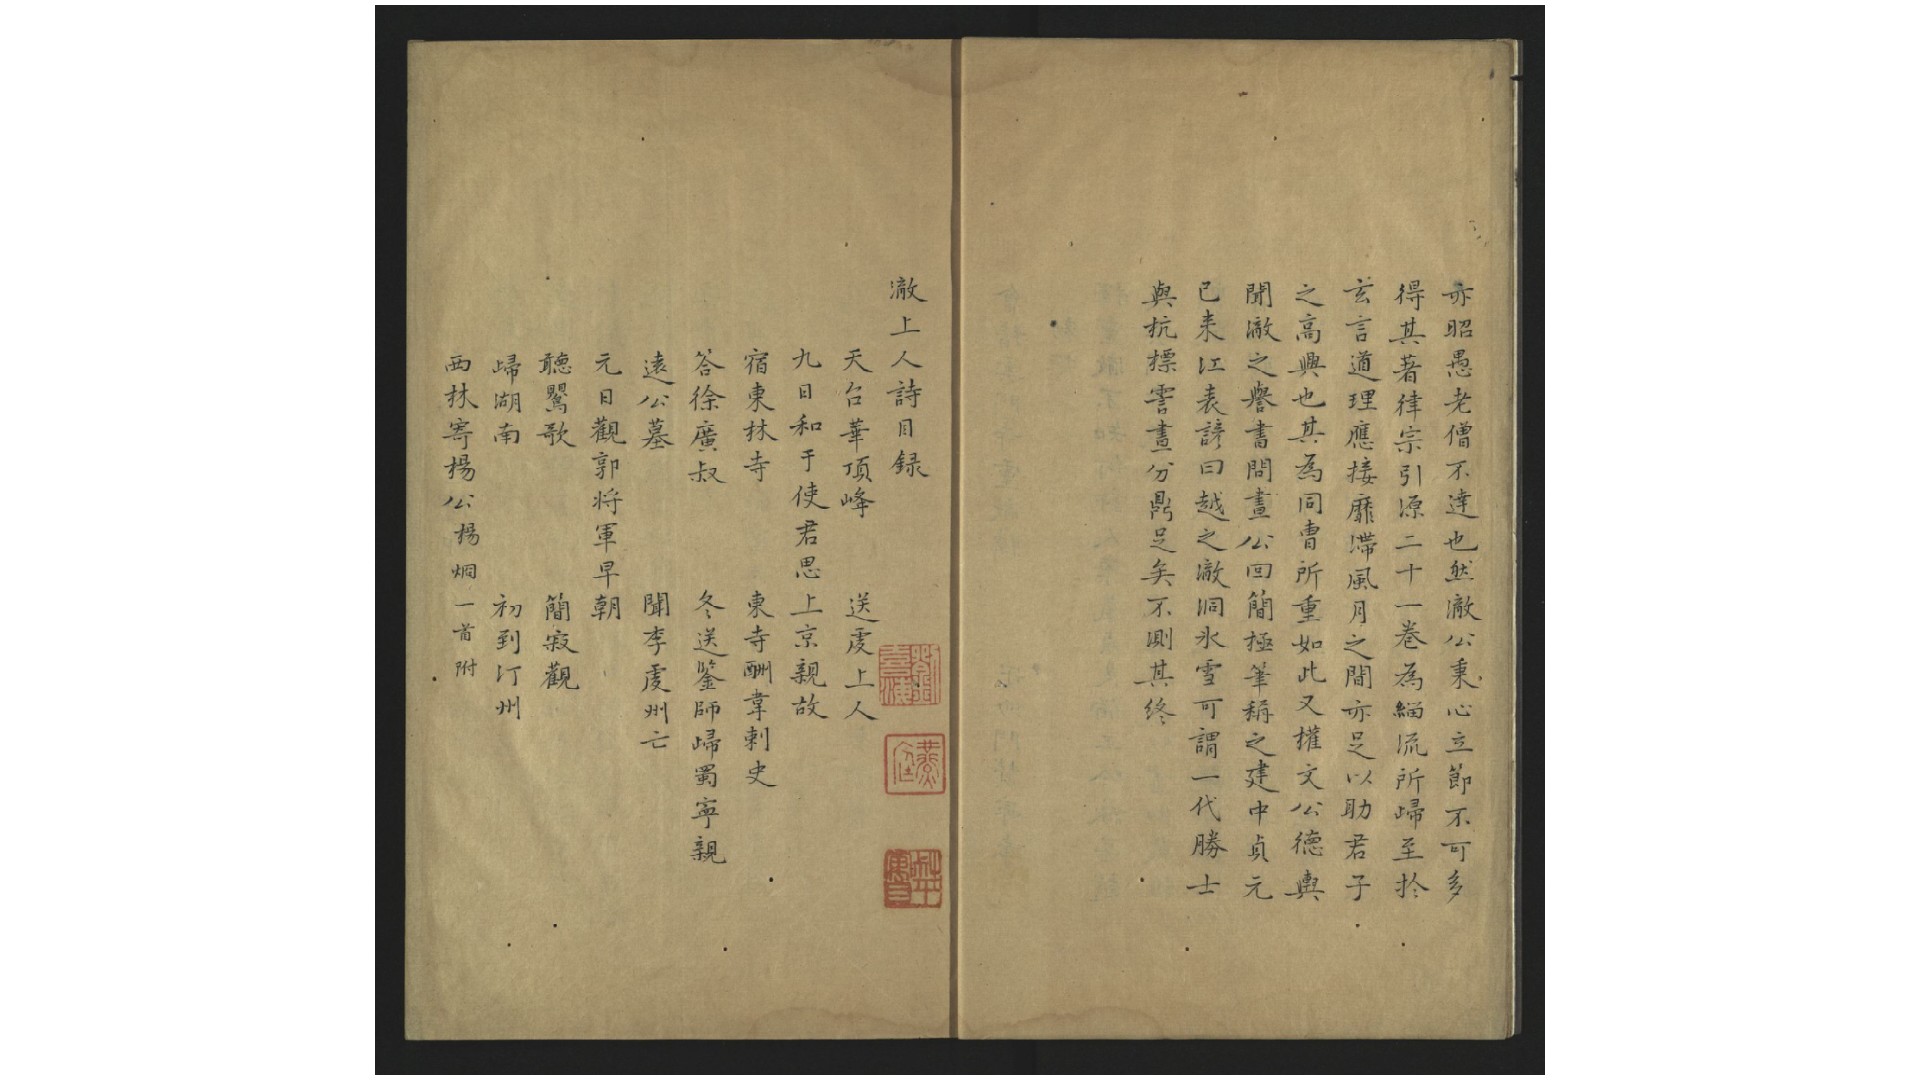 亦昭愚老僧不達也然澈公秉心立節不可多
得其著律宗引源二十一卷為緇流所歸至扵
玄言道理應接靡滯風月之間亦足以助君子
之高興也其為同曺所重如此又權文公德輿
聞澈之譽書問晝公回簡極筆稱之建中貞元
已来江表諺曰越之澈洞氷雪可謂一代勝士
與杭標霅晝分鼎足矣不測其終
澈上人詩目録
天台華頂峰
送虔上人
九日和于使君思上京親故
宿東林寺
東寺酬韋刺史
答徐廣叔
冬送鑒師歸蜀寧親
遠公墓
聞李虔州亡
元日觀郭将軍早朝
聽鸎歌
簡寂觀
歸湖南
初到汀州
西林寄楊公楊烱一首附